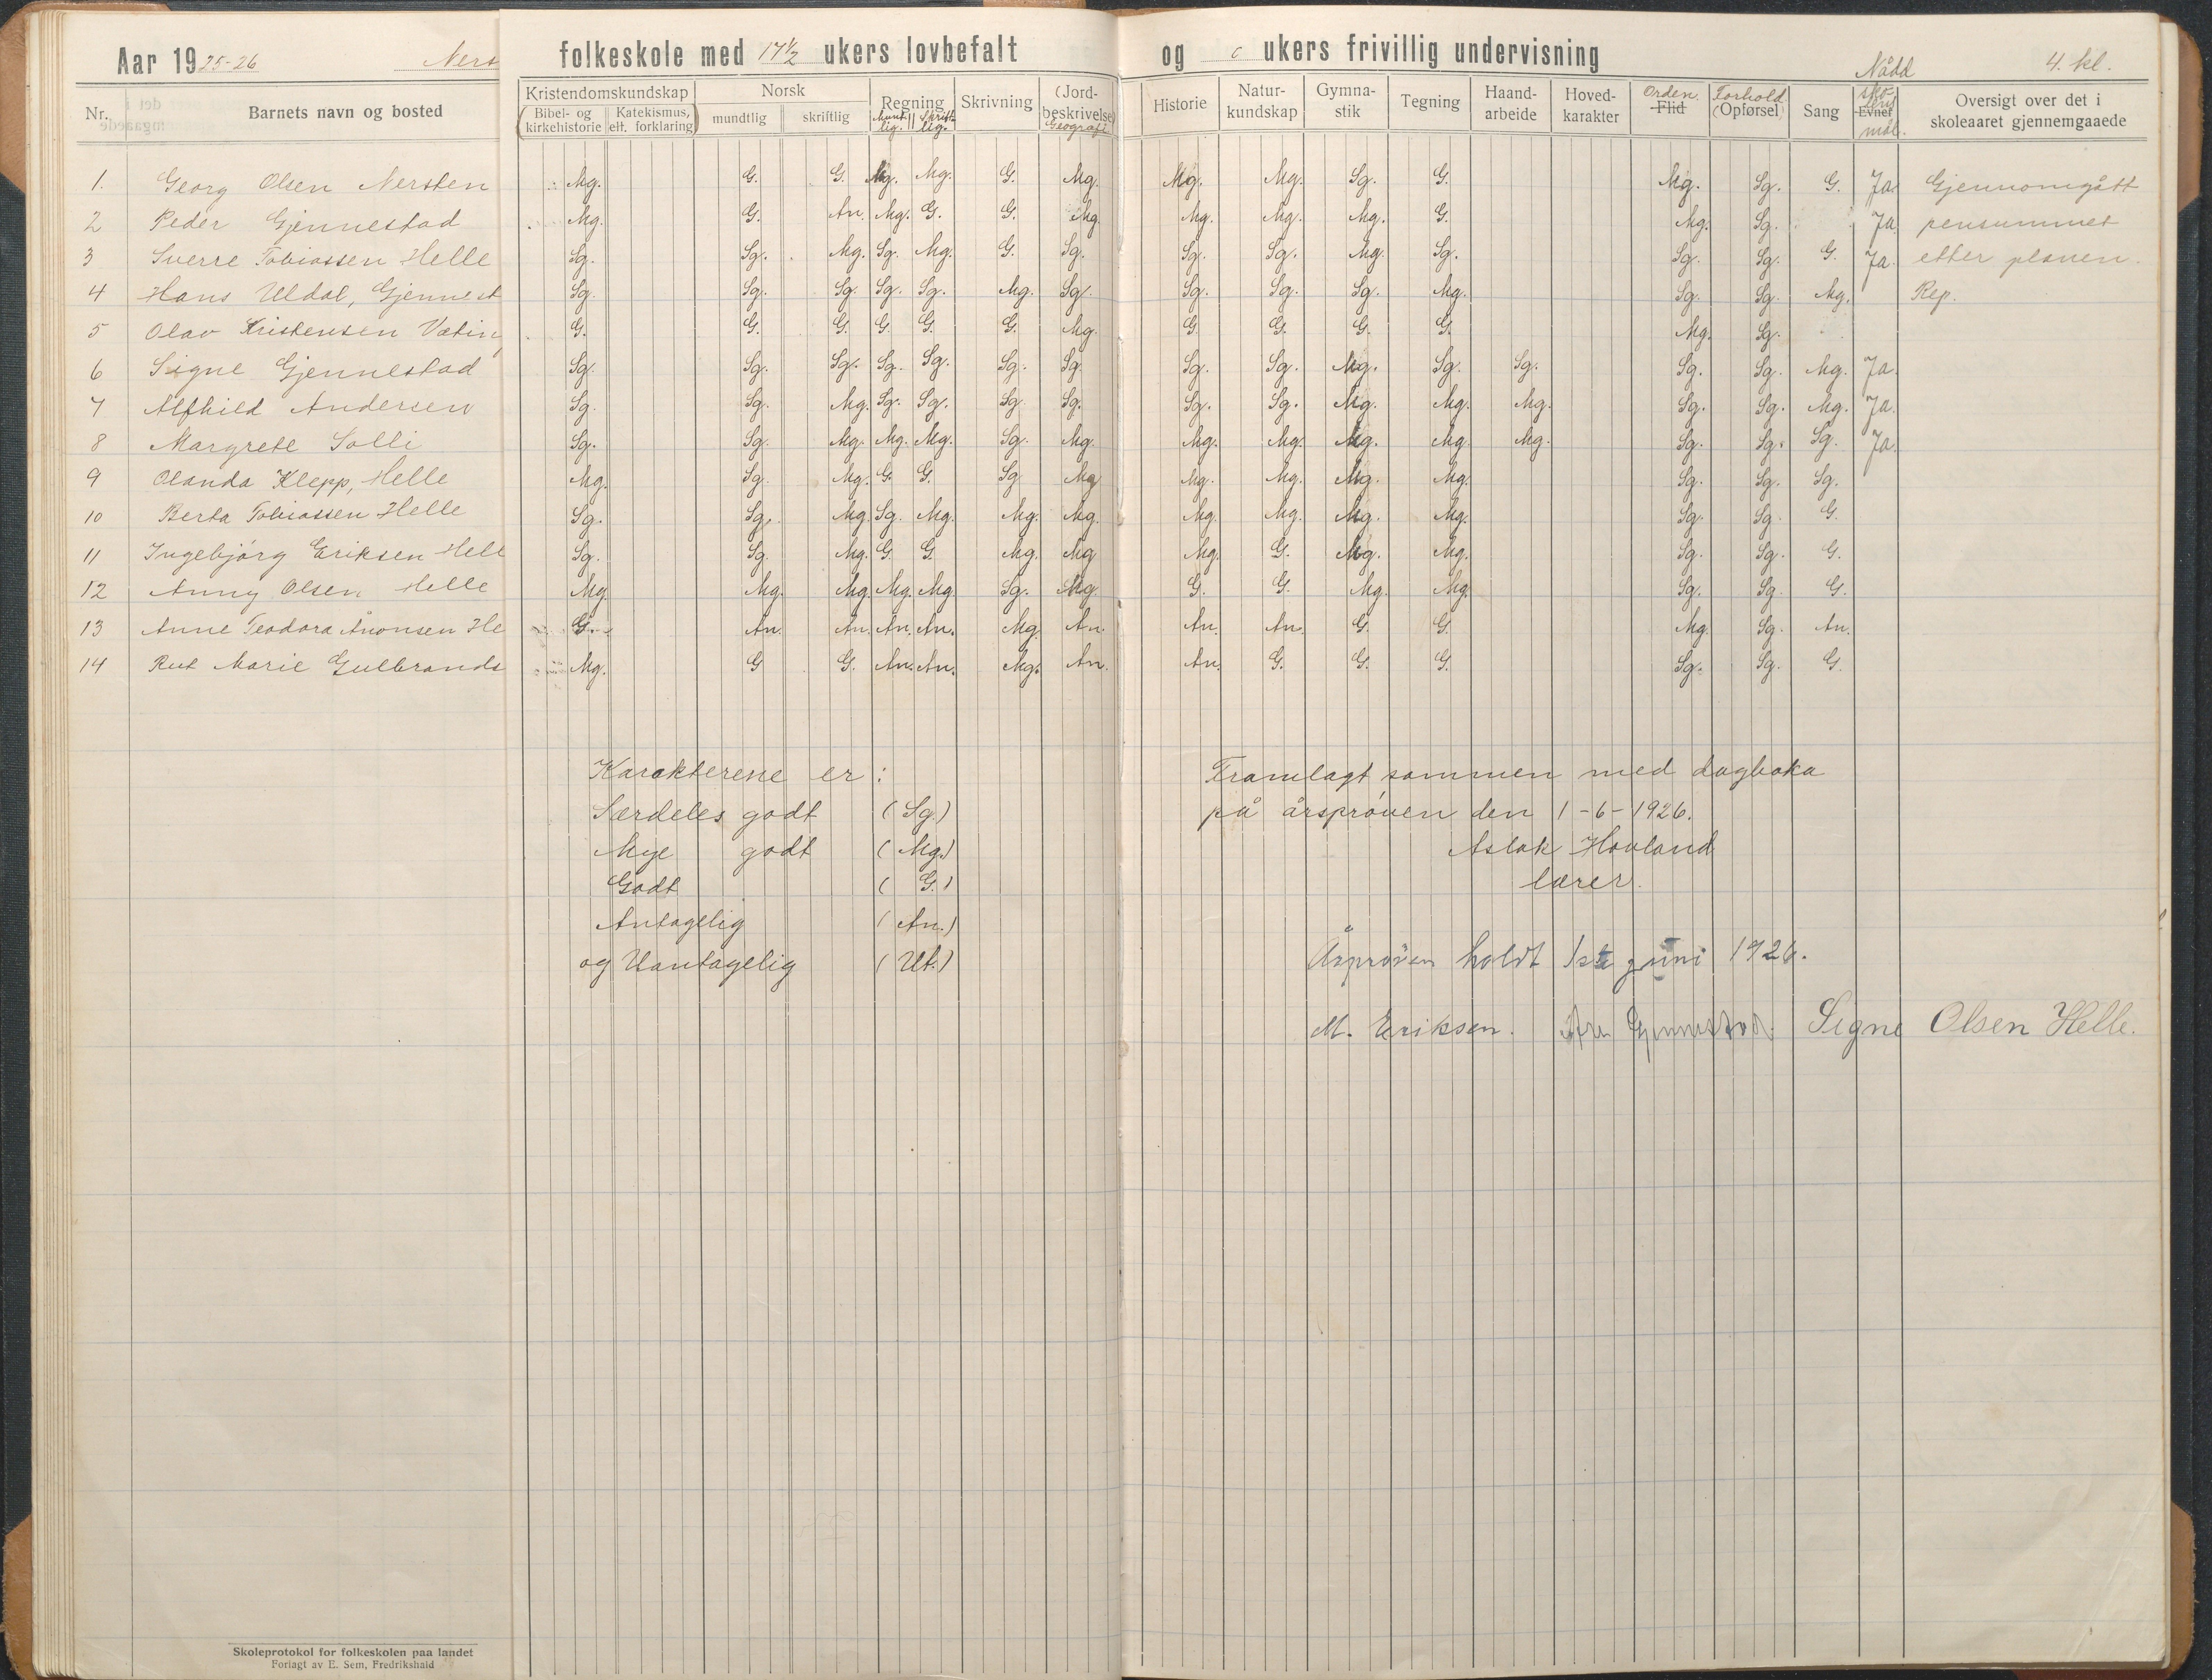 Aar 1925-26 Ners folkeskole med 17½ ukers lovbefalt og 0 ukers frivillig undervisning 4. kl.
Nr. Barnets navn og bosted Kristendomskundskap Norsk Regning Skrivning (Jord-beskrivelse) Geografi Historie Natur-kundskap Gymna-stik Tegning Haand-arbeide Hoved-karakter Orden. Flid Forhold (Opførsel) Sang Nådd sko-lens Evner mål. Oversigt over det i skoleaaret gjennemgaaede
Bibel- og kirkehistorie Katekismus, elt. forklaring mundtlig skriftlig Munt-lig. Skrift-lig.
1. Georg Olsen Nersten Mg. G. G. Mg. Mg. G. Mg. Mg. Mg. Sg. G. Mg. Sg. G. Ja Gjennomgått
2 Peder Gjennestad Mg. G. An. Mg. G. G. Mg. Mg. Mg. Mg. G. Mg. Sg. Ja pensummet
3 Sverre Tobiassen Helle Sg. Sg. Mg. Sg. Mg. G. Sg. Sg. Sg. Mg. Sg. Sg. Sg. G. Ja. etter planen.
4 Hans Uldal, Gjennest Sg. Sg. Sg. Sg. Sg. Mg. Sg. Sg. Sg. Sg. Mg. Sg. Sg. Mg. Rep.
5 Olav Kristensen Vatin G. G. G. G. G. G. Mg. G. G. G. G. Mg. Sg.
6 Signe Gjennestad Sg. Sg. Sg. Sg. Sg. Sg. Sg. Sg. Sg. Mg. Sg. Sg. Sg. Sg. Mg. Ja.
7 Alfhild Andersen Sg. Sg. Mg. Sg. Sg. Sg. Sg. Sg. Sg. Mg. Mg. Mg. Sg. Sg. Mg. Ja.
8 Margrete Solli Sg. Sg. Mg. Mg. Mg. Sg. Mg. Mg. Mg. Mg. Mg. Mg. Sg. Sg. Sg. Ja.
9 Olanda Klepp, Helle Mg. Sg. Mg. G. G. Sg. Mg Mg. Mg. Mg. Mg. Sg. Sg. Sg.
10 Berta Tobiassen Helle Sg. Sg. Mg. Sg. Mg. Mg. Mg. Mg. Mg. Mg. Mg. Sg. Sg. G.
11 Ingebjørg Eriksen Hell Sg. Sg. Mg. G. G. Mg. Mg Mg. G. Mg. Mg. Sg. Sg. G.
12 Anny Olsen Helle Mg. Mg. Mg. Mg. Mg. Sg. Mg. G. G. Mg. Mg. Sg. Sg. G.
13 Anne Teodora Anonsen He G. An. An. An. An. Mg. An. An. An. G. G. Mg. Sg. An.
14 Rut Marie Gulbrands Mg. G G. An. An. Mg. An. An. G. G. G. Sg. Sg. G.
Karakterene er:
Særdeles godt (Sg.)
Mye godt (Mg.)
Godt (G.)
Antagelig (An.)
og Uantagelig (Ut.)
Framlagt sammen med dagboka
på årsprøven den 1-6-1926.
Aslak Hovland
lærer.
Årsprøven holdt 1ste juni 1926.
M. Eriksen. Gjennestad. Signe Olsen Helle.
Skoleprotokol for folkeskolen paa landet
Forlagt av E. Sem, Fredrikshald